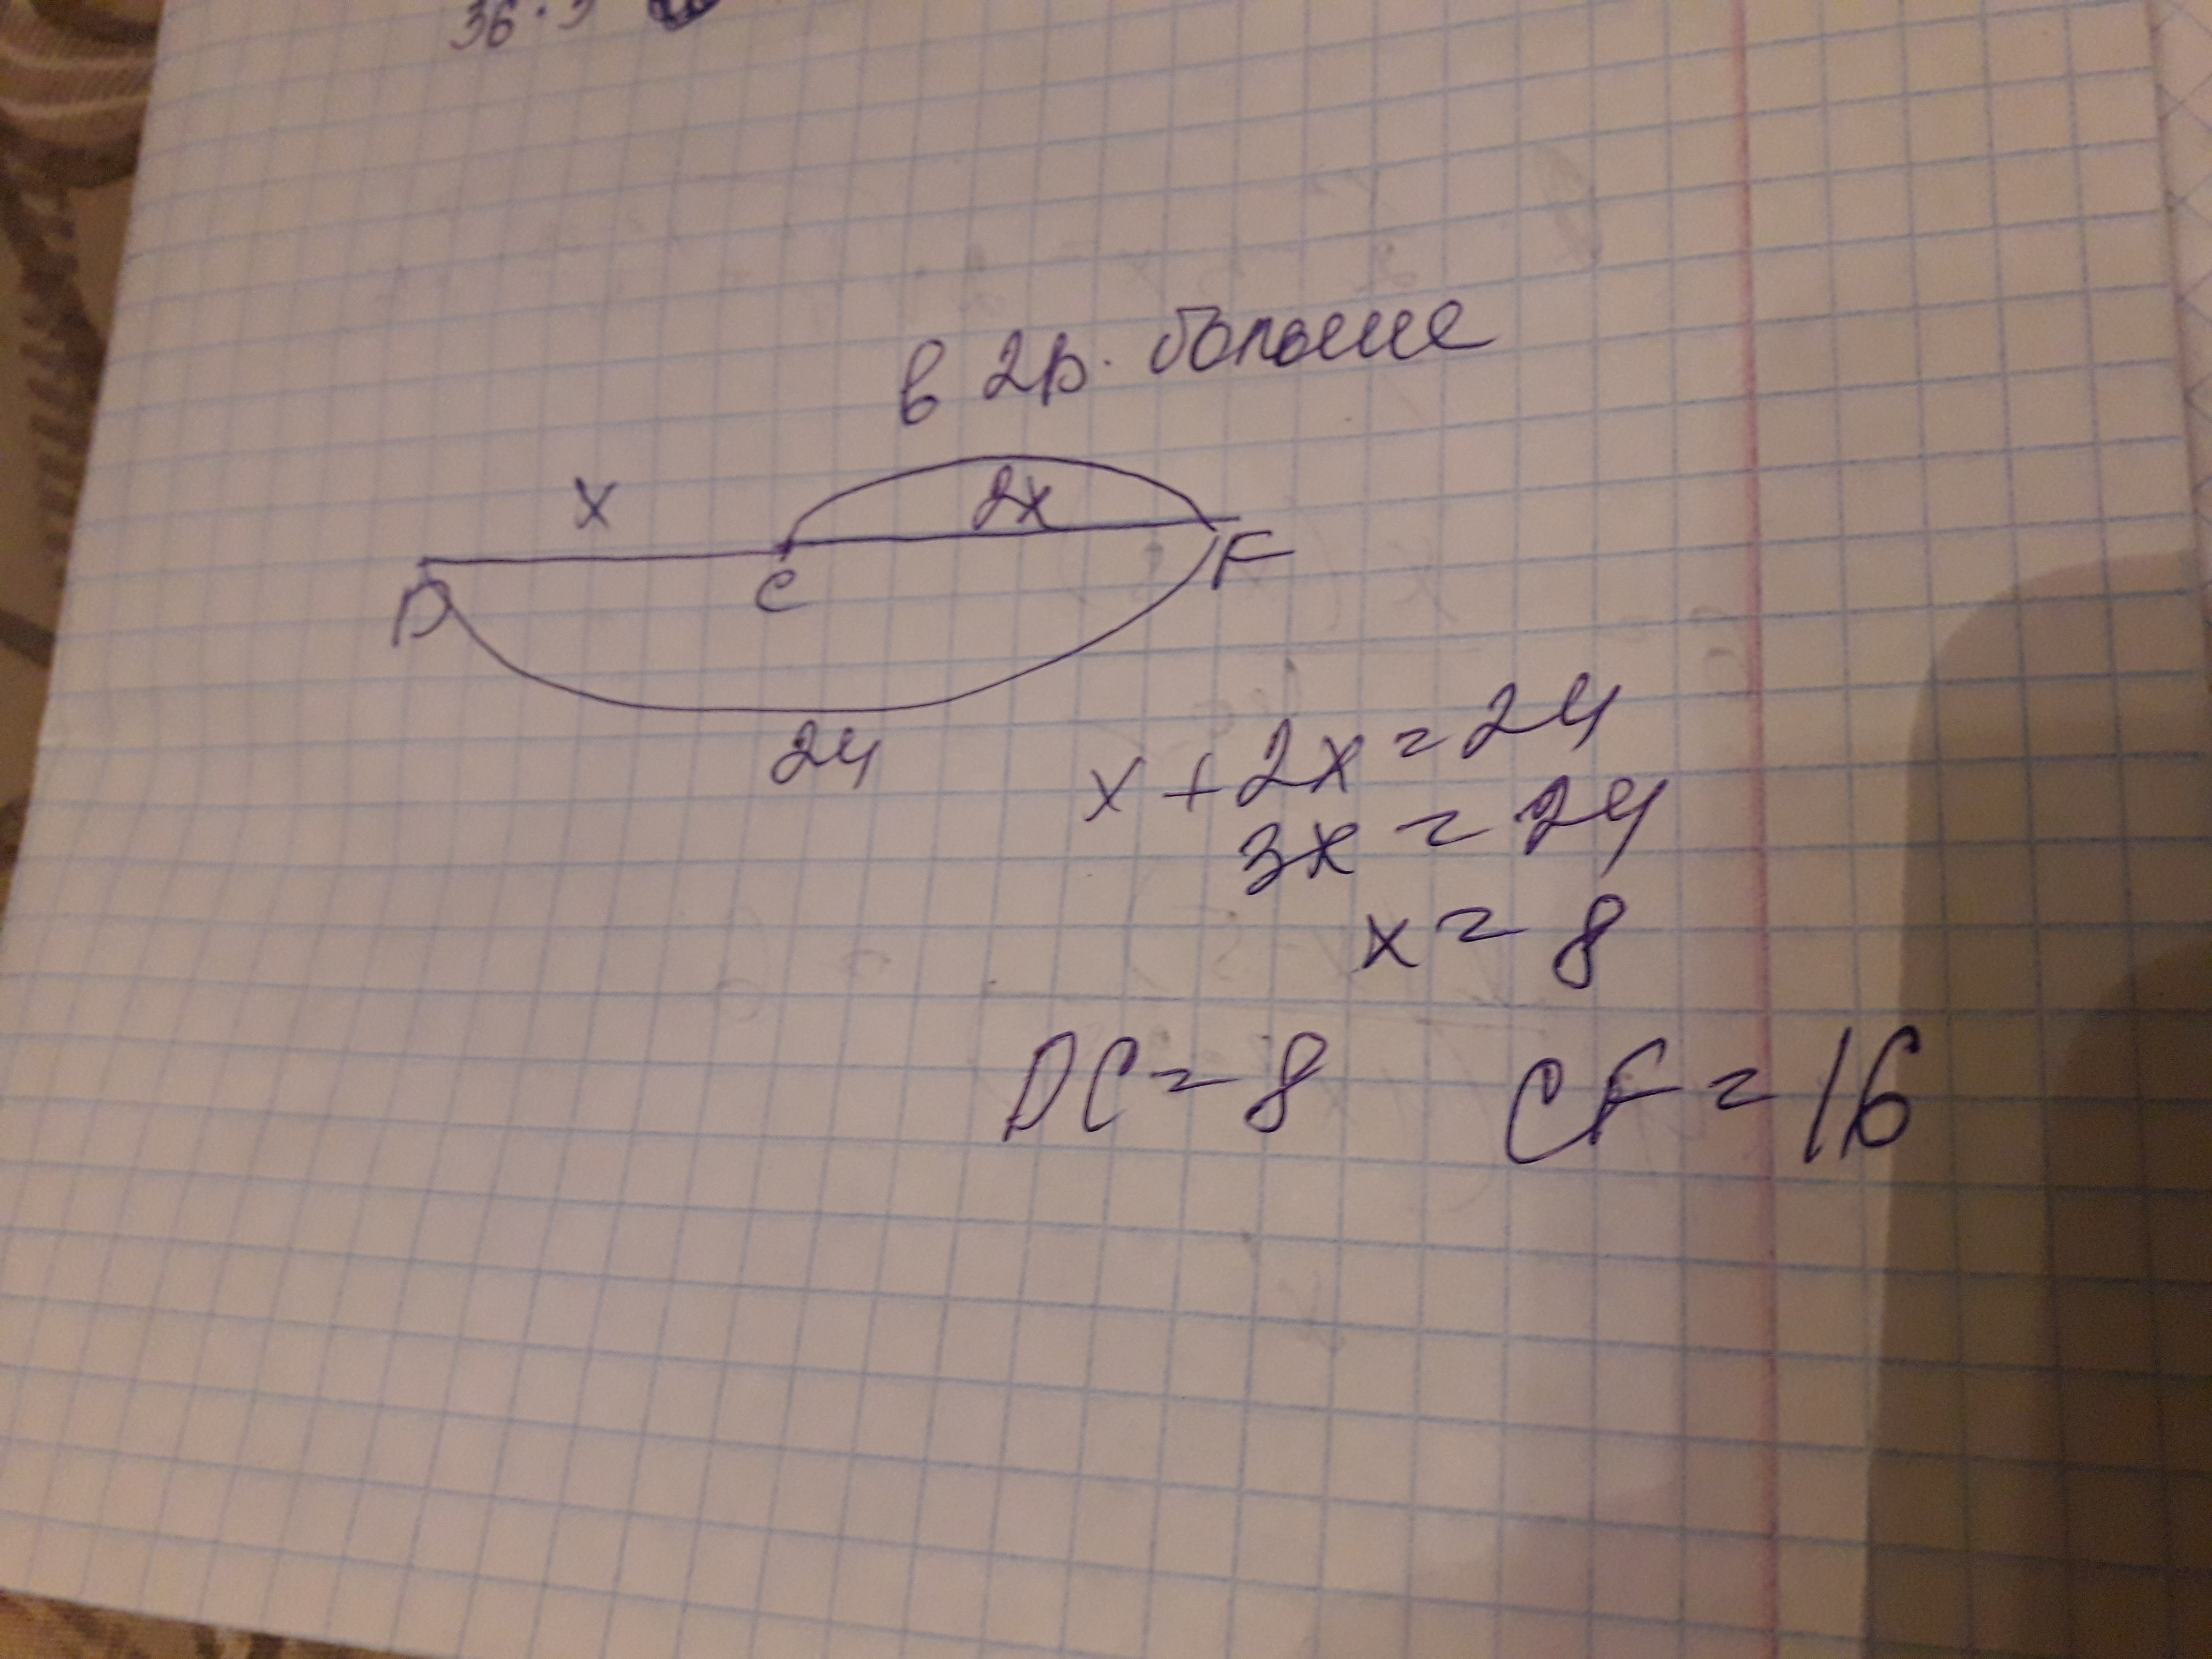 36·3
в 2р. больше
x
2x
D
C
F
24
x + 2x = 24
3x = 24
x = 8
DC = 8 CF = 16